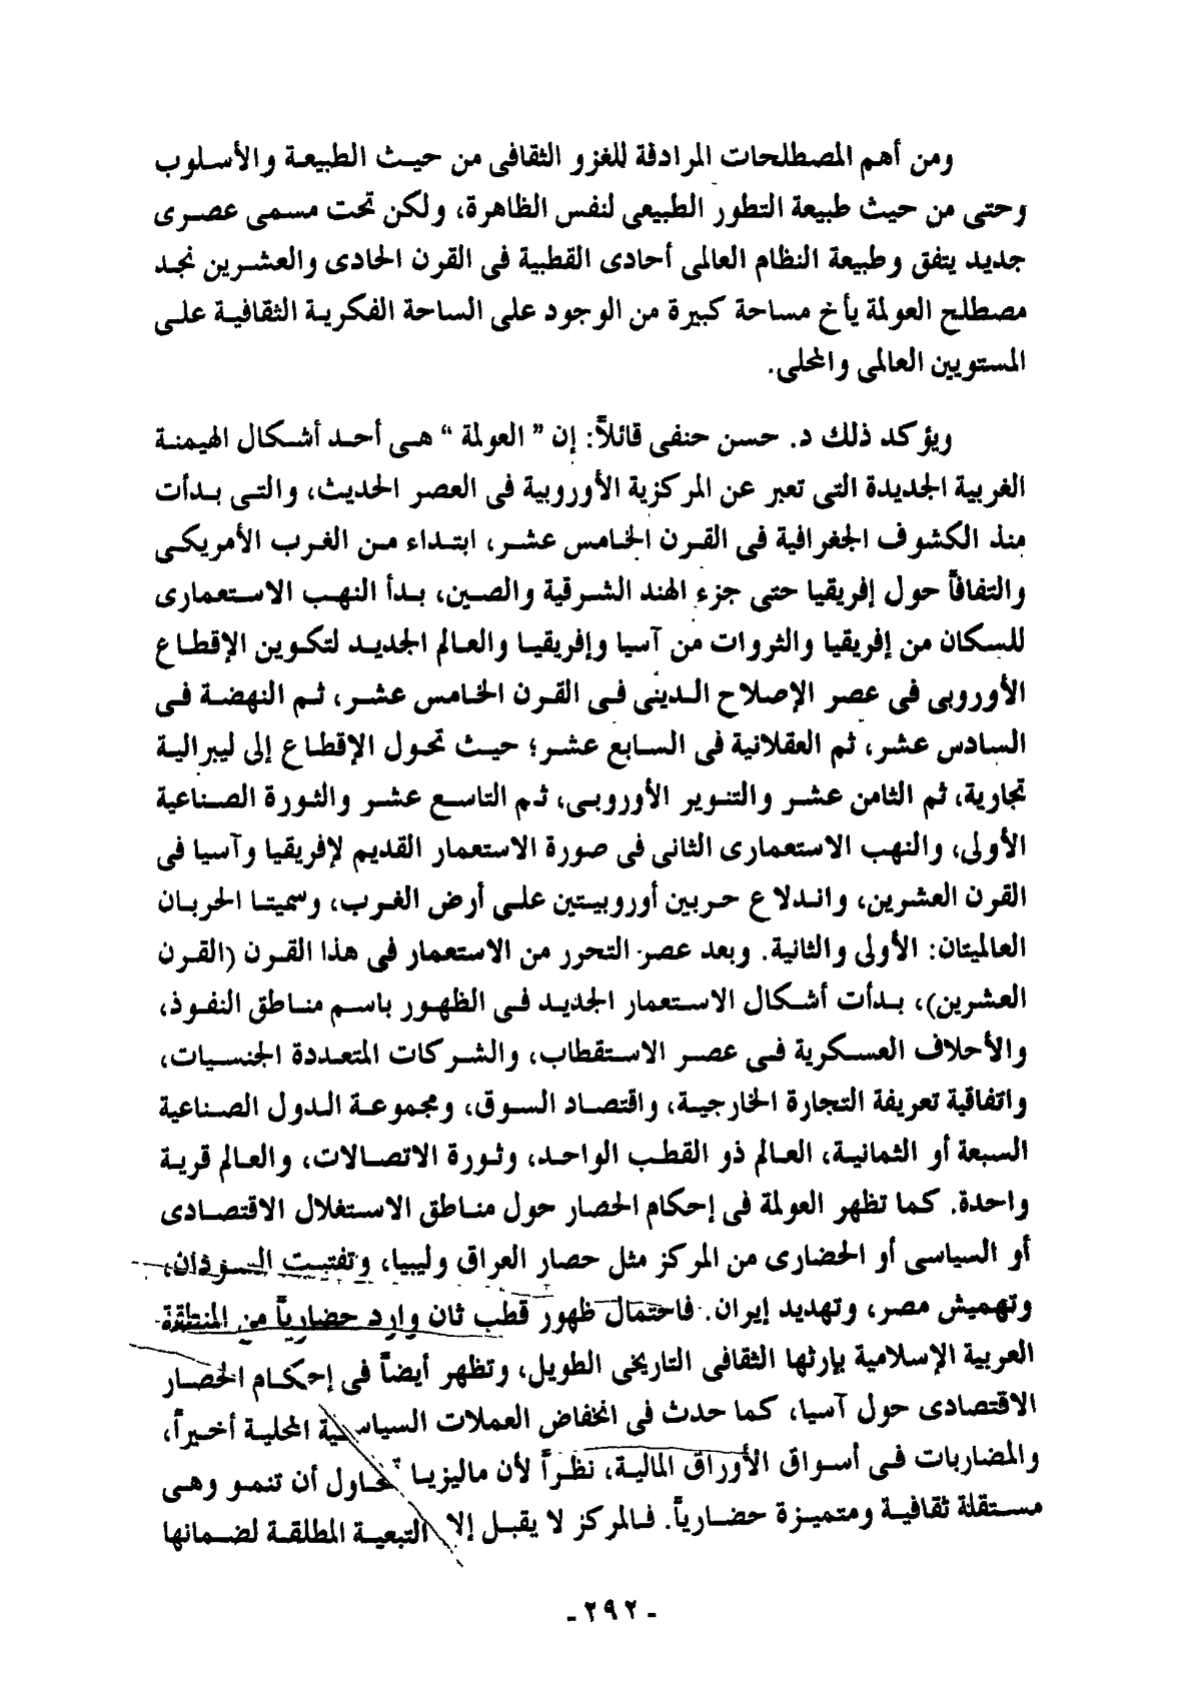 ومن أهم المصطلحات المرادفة للغزو الثقافى من حيث الطبيعة والأسلوب
وحتى من حيث طبيعة التطور الطبيعى لنفس الظاهرة، ولكن تحت مسمى عصرى
جديد يتفق وطبيعة النظام العالمى أحادى القطبية فى القرن الحادى والعشرين نجد
مصطلح العولمة يأخ مساحة كبيرة من الوجود على الساحة الفكرية الثقافية على
المستويين العالمى والمحلى.
ويؤكد ذلك د. حسن حنفى قائلاً: إن " العولمة " هى أحد أشكال الهيمنة
الغربية الجديدة التى تعبر عن المركزية الأوروبية فى العصر الحديث، والتى بدأت
منذ الكشوف الجغرافية فى القرن الخامس عشر، ابتداء من الغرب الأمريكى
والتفافاً حول إفريقيا حتى جزء الهند الشرقية والصين، بدأ النهب الاستعمارى
للسكان من إفريقيا والثروات من آسيا وإفريقيا والعالم الجديد لتكوين الإقطاع
الأوروبى فى عصر الإصلاح الدينى فى القرن الخامس عشر، ثم النهضة فى
السادس عشر، ثم العقلانية فى السابع عشر؛ حيث تحول الإقطاع إلى ليبرالية
تجارية، ثم الثامن عشر والتنوير الأوروبى، ثم التاسع عشر والثورة الصناعية
الأولى، والنهب الاستعمارى الثانى فى صورة الاستعمار القديم لإفريقيا وآسيا فى
القرن العشرين، واندلاع حربين أوروبيتين على أرض الغرب، وسميتا الحربان
العالميتان: الأولى والثانية. وبعد عصر التحرر من الاستعمار فى هذا القرن (القرن
العشرين)، بدأت أشكال الاستعمار الجديد فى الظهور باسم مناطق النفوذ،
والأحلاف العسكرية فى عصر الاستقطاب، والشركات المتعددة الجنسيات،
واتفاقية تعريفة التجارة الخارجية، واقتصاد السوق، ومجموعة الدول الصناعية
السبعة أو الثمانية، العالم ذو القطب الواحد، وثورة الاتصالات، والعالم قرية
واحدة. كما تظهر العولمة فى إحكام الحصار حول مناطق الاستغلال الاقتصادى
أو السياسى أو الحضارى من المركز مثل حصار العراق وليبيا، وتفتيت السودان،
وتهميش مصر، وتهديد إيران. فاحتمال ظهور قطب ثان وارد حضارياً من المنطقة
العربية الإسلامية بإرثها الثقافى التاريخى الطويل، وتظهر أيضاً فى إحكام الحصار
الاقتصادى حول آسيا، كما حدث فى انخفاض العملات السياسية المحلية أخيراً،
والمضاربات فى أسواق الأوراق المالية، نظراً لأن ماليزيا تحاول أن تنمو وهى
مستقلة ثقافية ومتميزة حضارياً. فالمركز لا يقبل إلا التبعية المطلقة لضمانها
- ٢٩٢ -